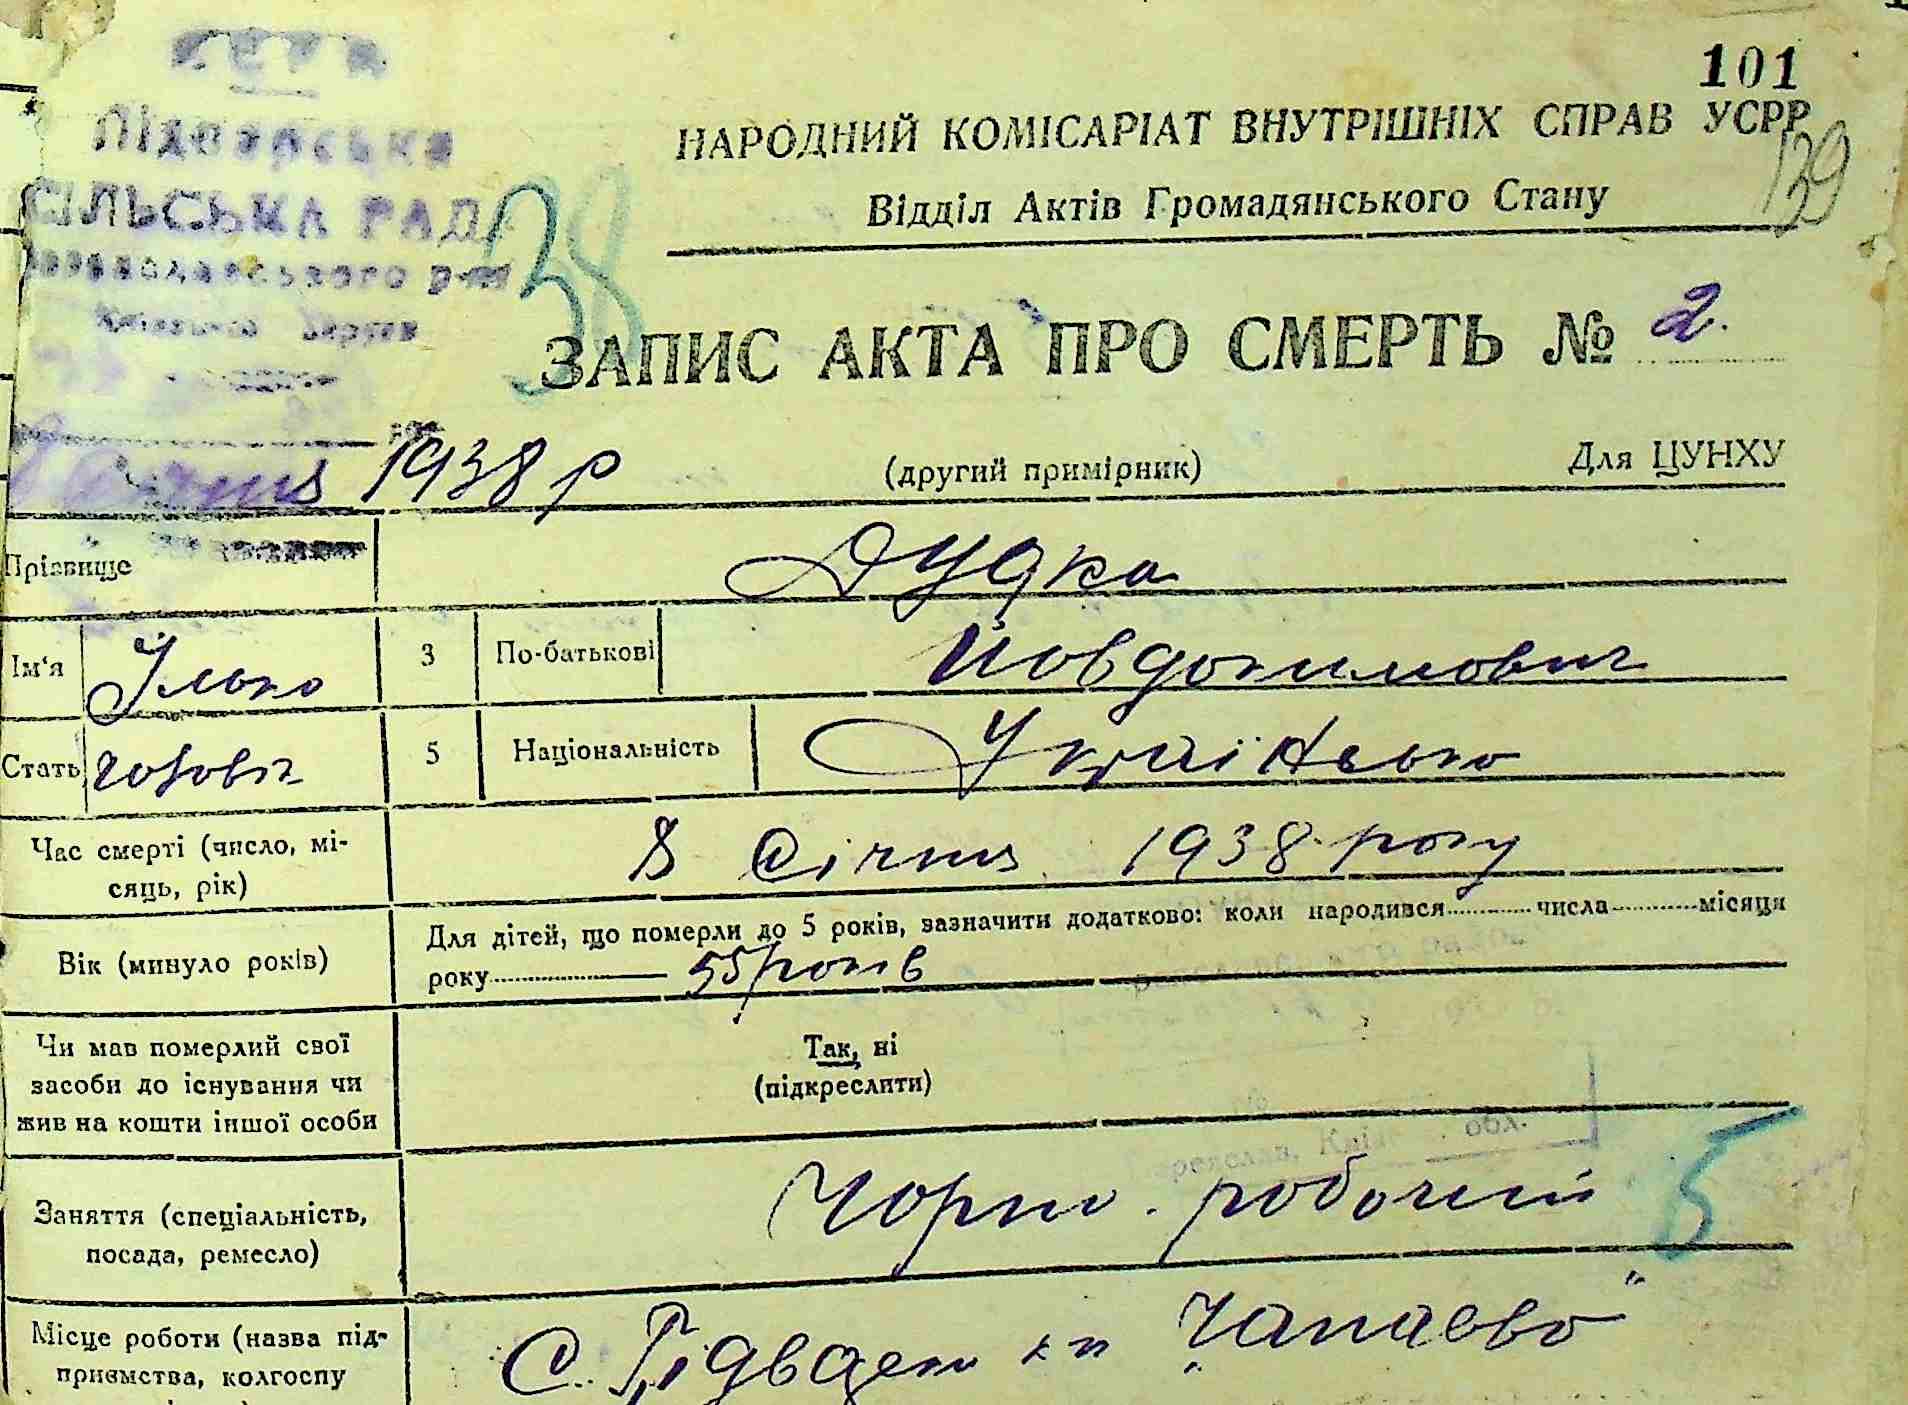 УСРР
СІЛЬСЬКА РАДА
101
НАРОДНИЙ КОМІСАРІАТ ВНУТРІШНІХ СПРАВ УСРР
139
Відділ Актів Громадянського Стану
38
ЗАПИС АКТА ПРО СМЕРТЬ № 2.
8 Січня 1938 р
(другий примірник) Для ЦУНХУ
Прізвище Дудка
Ім'я Ілько 3 По-батькові Йовдокимович
Стать чоловік 5 Національність Українсько
Час смерті (число, мі-
сяць, рік) 8 Січня 1938 року
Вік (минуло років) Для дітей, що померли до 5 років, зазначити додатково: коли народився числа місяця
року 55 років
Чи мав померлий свої
засоби до існування чи
жив на кошти іншої особи
Так, ні
(підкреслити)
обл.
Заняття (спеціальність,
посада, ремесло) Чорно. робочий 5
Місце роботи (назва під-
приємства, колгоспу
С. "Чапаєво"